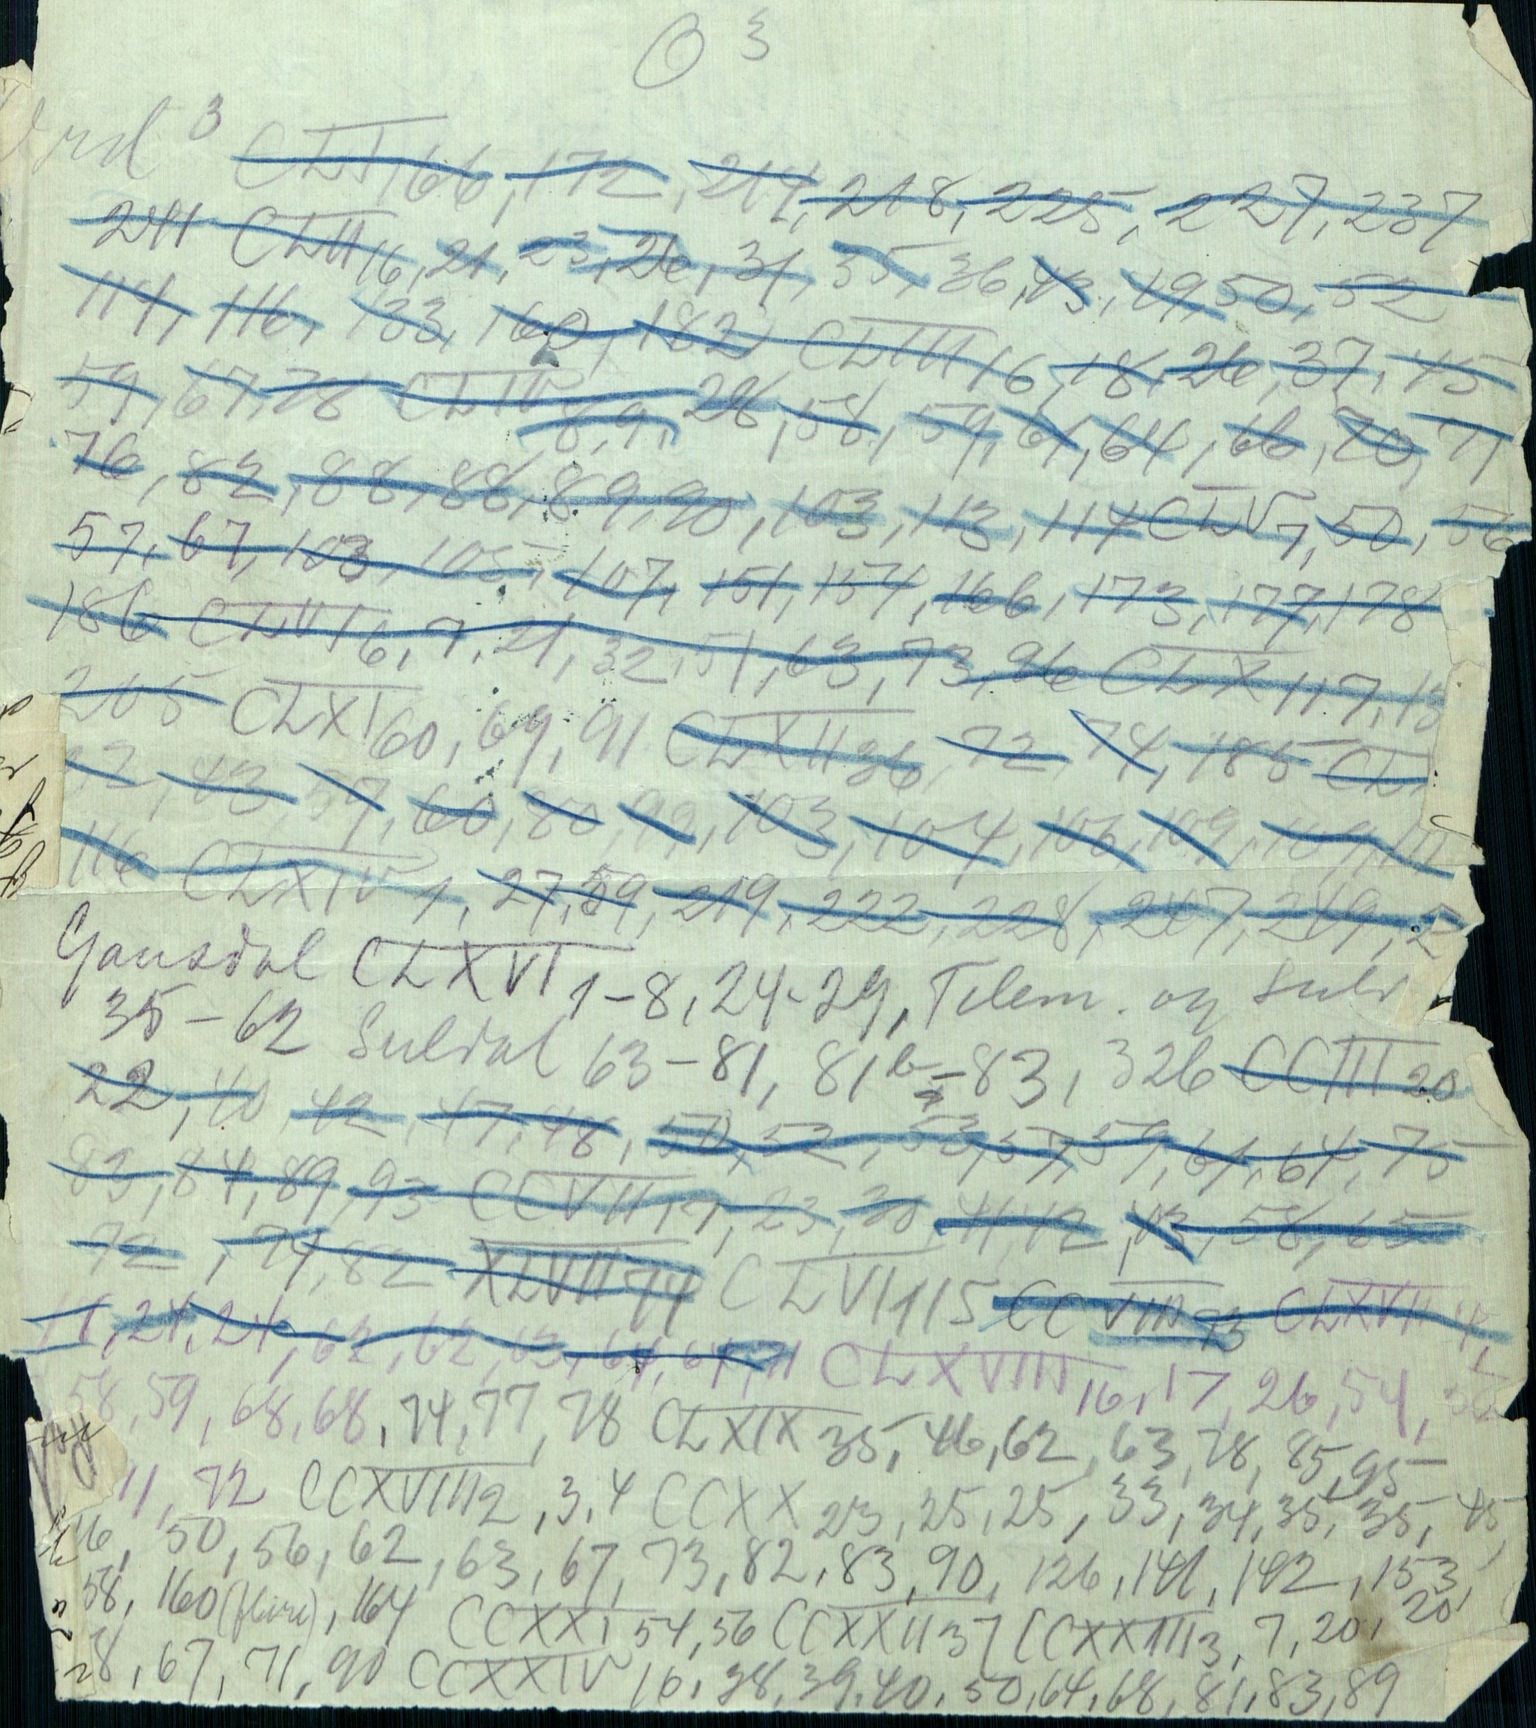 O 3
Ord 3 CLI 166, 172, 214, 218, 225, 227, 237
241 CLII 16, 21, 23, 26, 31, 35, 36, 43, 49, 50, 52
114, 116, 133, 160, 182 CLIII 16, 18, 26, 37, 45
59, 67, 78 CLIV 8, 9, 28, 58, 59, 61, 64, 66, 70, 71
76, 82, 88, 88, 89, 90, 103, 113, 114 CLV 7, 50, 56
57, 67, 103, 105, 107, 151, 154, 166, 173, 177, 178
186 CLVI 6, 7, 21, 32, 51, 63, 73, 96 CLX 117, 13
205 CLXI 60, 69, 91 CLXII 36, 72, 74, 185 CL
32, 43, 59, 60, 80, 99, 103, 104, 106, 109, 109, 111
116 CLXIV 1, 27, 59, 219, 222, 228, 247, 249, 2
Gausdal CLXVI 1-8, 24-29, Telem. og Suld
35-62 Suldal 63-81, 81b-83, 326 CCIII 20
22, 40, 42, 47, 48, 50, 52, 53, 57, 59, 61, 64, 75
83, 84, 89, 93 CCVII 17, 23, 30, 41, 42, 43, 58, 65
72, 74, 82 XLVII 74 CLVI 115 CCVIII 93 CLXVII 4,
11, 24, 24, 62, 62, 63, 64, 64, 71 CLXVIII 16, 17, 26, 54, 56
58, 59, 68, 68, 74, 77, 78 CLXIX 35, 46, 62, 63, 78, 85, 95
11, 72 CCXVIII 2, 3, 4 CCXX 23, 25, 25, 33, 34, 35, 35, 45,
46, 50, 56, 62, 63, 67, 73, 82, 83, 90, 126, 141, 142, 153,
58, 160, 164 CCXXI 54, 56 CCXXII 37 CCXXIII 3, 7, 20, 20,
28, 67, 71, 90 CCXXIV 16, 38, 39, 40, 50, 64, 68, 81, 83, 89